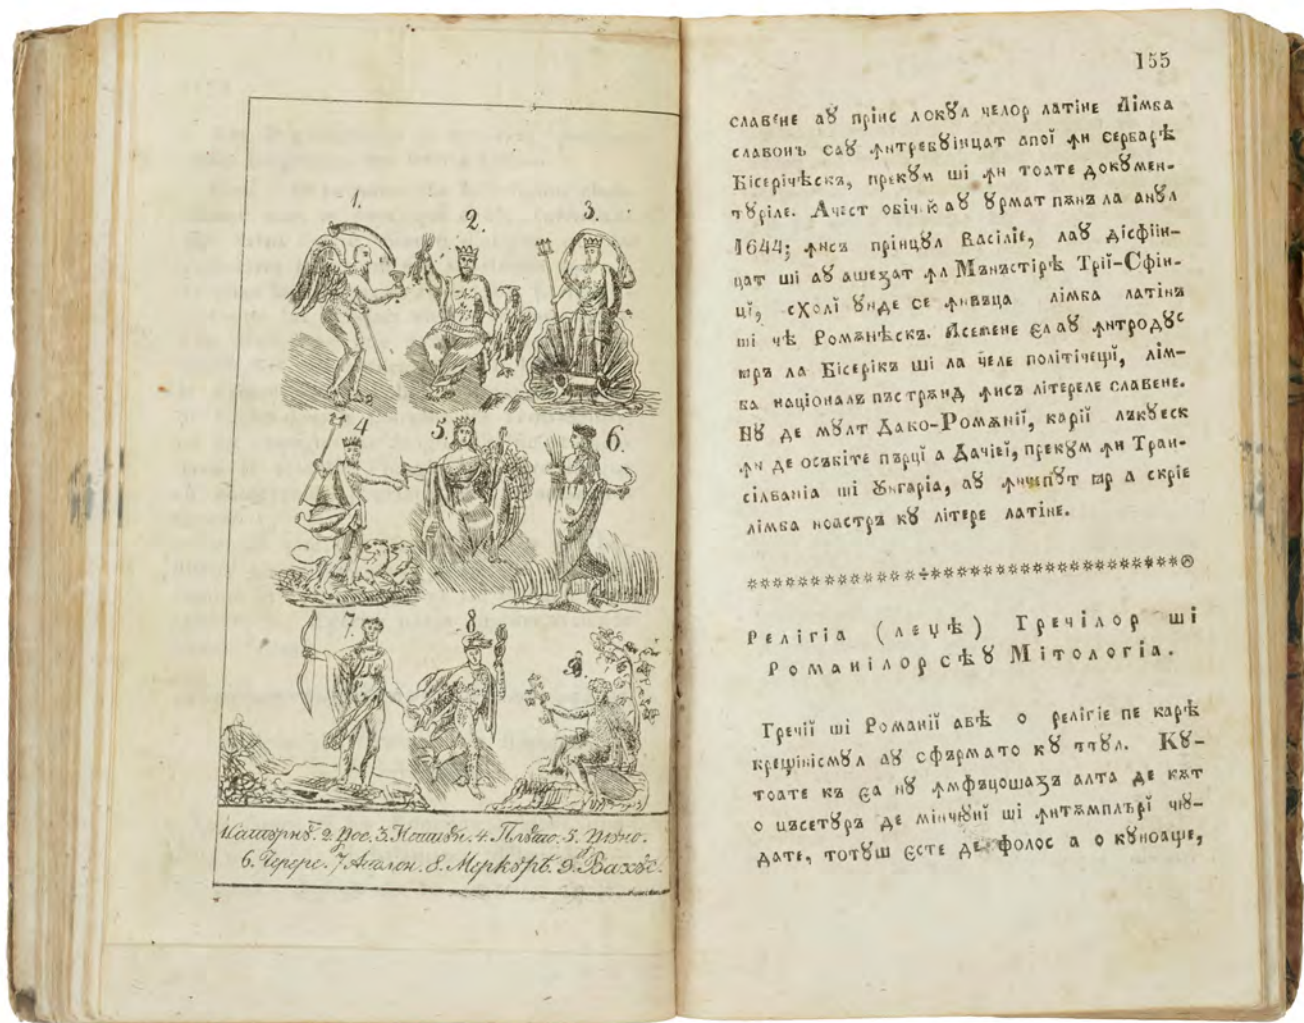 1.
2.
3.
4
5.
6.
7.
8
9.
1. Сатꙋрнꙋ. 2. Џое. 3. Нептꙋн. 4. Плꙋто. 5. Џꙋно.
6. Черере. 7 Аполон. 8. Меркꙋрꙋ. 9. Вахꙋс.
155
славене аꙋ прінс локꙋл челор латіне Лімба
славонъ саꙋ ꙟнтребꙋінцат апоі ꙟн сербарѣ
Бісерічѣскъ, прекꙋм ші ꙟн тоате докꙋмен-
тꙋріле. Ачест обічй аꙋ ꙋрмат пѫнъ ла анꙋл
1644; ꙟнсъ прінцꙋл Васіліе, лаꙋ дісфіін-
цат ші аꙋ ашезат ꙟл Мънъстірѣ Трії-Сфін-
ції, схолі ꙋнде се ꙟнвъца лімба латінъ
ші чѣ Ромѫнѣскъ. Асемене ел аꙋ ꙟнтродꙋс
ꙗръ ла Бісерікъ ші ла челе політічещі, лім-
ба націоналъ пъстрѫнд ꙟнсъ літереле славене.
Нꙋ де мꙋлт Дако-Ромѫнії, карії лъкꙋеск
ꙟн де осъбіте пърці а Дачіеї, прекꙋм ꙟн Тран-
сілваніа ші Ꙋнгаріа, аꙋ ꙟнчепꙋт ꙗр а скріе
лімба ноастръ кꙋ літере латіне.
Релігіа (леџѣ) Гречілор ші
Романілор сѣꙋ Мітологіа.
Гречії ші Романії авѣ о релігіе пе карѣ
крещінісмꙋл аꙋ сфърмато кꙋ ттꙋл. Кꙋ-
тоате къ еа нꙋ ꙟмфъцошазъ алта де кѫт
о цъсетꙋръ де мінчюні ші ꙟнтѫмплърі чіꙋ-
дате, тотꙋш есте де фолос а о кꙋноаще,